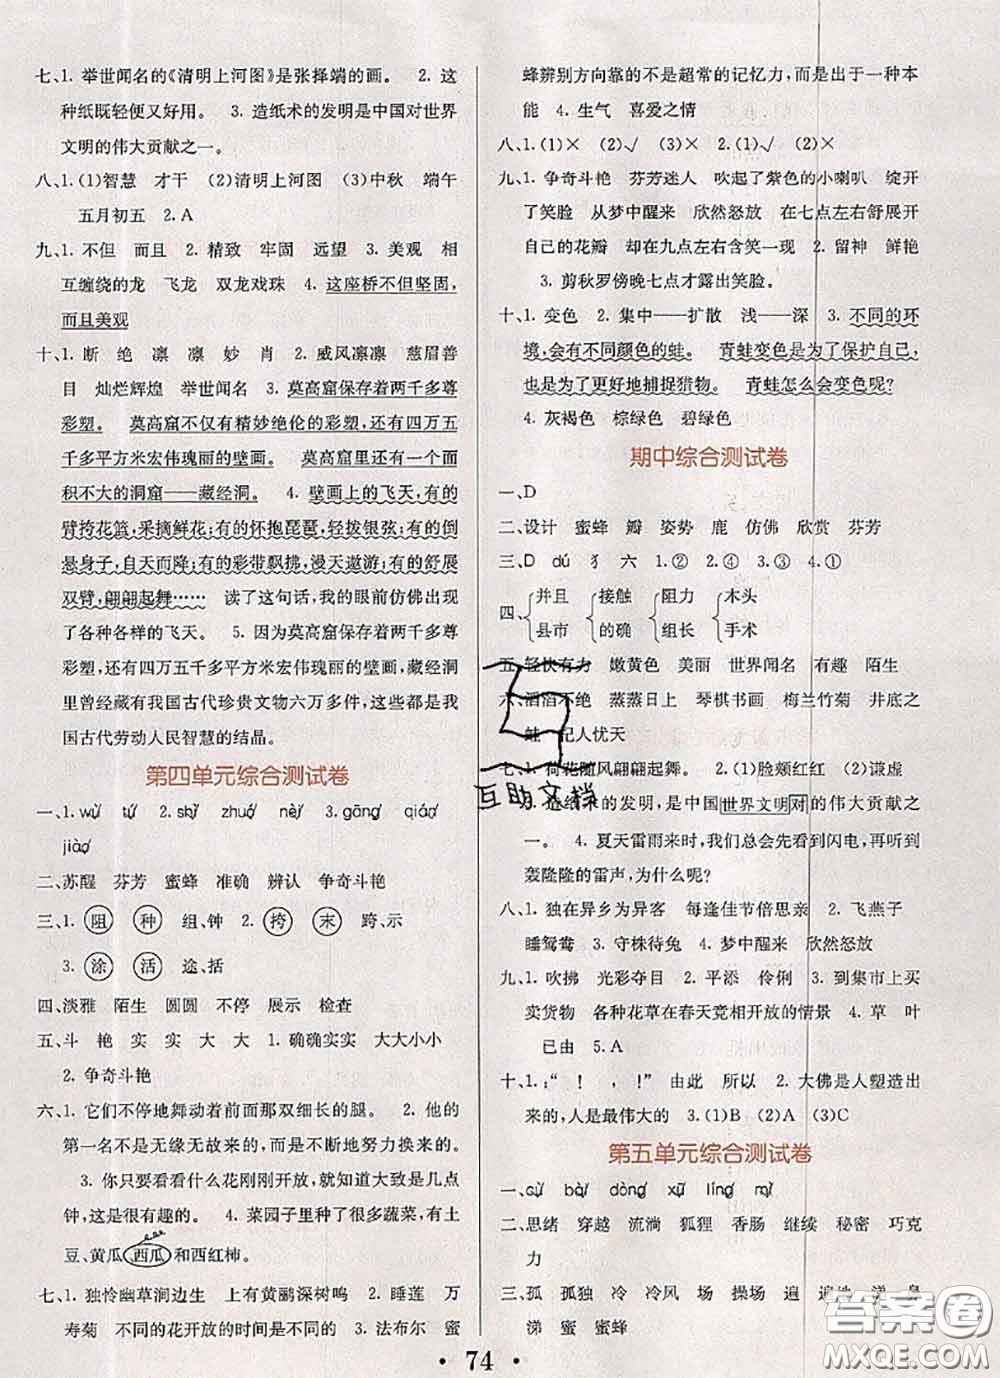 七、1. 举世闻名的《清明上河图》是张择端的画。 2. 这
种纸既轻便又好用。 3. 造纸术的发明是中国对世界
文明的伟大贡献之一。
八、1. (1)智慧 才干 (2)清明上河图 (3)中秋 端午
五月初五 2. A
九、1. 不但 而且 2. 精致 牢固 远望 3. 美观 相
互缠绕的龙 飞龙 双龙戏珠 4. 这座桥不但坚固,
而且美观
十、1. 断 绝 凛 凛 妙 肖 2. 威风凛凛 慈眉善
目 灿烂辉煌 举世闻名 3. 莫高窟保存着两千多尊
彩塑。 莫高窟不仅有精妙绝伦的彩塑,还有四万五
千多平方米宏伟瑰丽的壁画。 莫高窟里还有一个面
积不大的洞窟——藏经洞。 4. 壁画上的飞天,有的
臂挎花篮,采摘鲜花;有的怀抱琵琶,轻拨银弦;有的倒
悬身子,自天而降;有的彩带飘拂,漫天遨游;有的舒展
双臂,翩翩起舞…… 读了这句话,我的眼前仿佛出现
了各种各样的飞天。 5. 因为莫高窟保存着两千多尊
彩塑,还有四万五千多平方米宏伟瑰丽的壁画,藏经洞
里曾经藏有我国古代珍贵文物六万多件,这些都是我
国古代劳动人民智慧的结晶。
第四单元综合测试卷
一、1. wù tú 2. shì zhuó nèi 3. gāng qiáo
jiào
二、苏醒 芬芳 蜜蜂 准确 辨认 争奇斗艳
三、1. 阻 种 组、钟 2. 挎 末 跨、示
3. 涂 活 途、括
四、淡雅 陌生 圆圆 不停 展示 检查
五、斗 艳 实 实 大 大 1. 确确实实 大大小小
2. 争奇斗艳
六、1. 它们不停地舞动着前面那双细长的腿。 2. 他的
第一名不是无缘无故来的,而是不断地努力换来的。
3. 你只要看看什么花刚刚开放,就知道大致是几点
钟,这是很有趣的。 4. 菜园子里种了很多蔬菜,有土
豆、黄瓜、西瓜和西红柿。
七、1. 独怜幽草涧边生 上有黄鹂深树鸣 2. 睡莲 万
寿菊 不同的花开放的时间是不同的 3. 法布尔 蜜
蜂辨别方向靠的不是超常的记忆力,而是一种本
能 4. 生气 喜爱之情
八、1. (1)× (2)√ (3)× 2. (1)√ (2)×
九、1. 争奇斗艳 芬芳迷人 吹起了紫色的小喇叭 绽开
了笑脸 从梦中醒来 欣然怒放 在七点左右舒展开
自己的花瓣 却在九点左右含笑一现 2. 留神 鲜艳
3. 剪秋罗傍晚七点才露出笑脸。
十、1. 变色 2. 集中——扩散 浅——深 3. 不同的环
境,会有不同颜色的蛙。 青蛙变色是为了保护自己,
也是为了更好地捕捉猎物。 青蛙怎么会变色呢?
4. 灰褐色 棕绿色 碧绿色
期中综合测试卷
一、D
二、设计 蜜蜂 瓣 姿势 鹿 仿佛 欣赏 芬芳
三、D dú 犭 六 1. ② 2. ④ 3. ① 4. ①
四、并且 接触 阻力 木头
县市 的确 组长 手术
五、轻快有力 嫩黄色 美丽 世界闻名 有趣 陌生
六、滔滔不绝 蒸蒸日上 琴棋书画 梅兰竹菊 井底之
蛙 杞人忧天
七、1. 荷花随风翩翩起舞。 2. (1)脸颊红红 (2)谦虚
3. 造纸术的发明,是中国世界文明对的伟大贡献之
一。 4. 夏天雷雨来时,我们总会先看到闪电,再听到
轰隆隆的雷声,为什么呢?
八、1. 独在异乡为异客 每逢佳节倍思亲 2. 飞燕子
睡鸳鸯 3. 守株待兔 4. 梦中醒来 欣然怒放
九、1. 吹拂 光彩夺目 2. 平添 伶俐 3. 到集市上买
卖货物 各种花草在春天竞相开放的情景 4. 草 叶
已由 5. A
十、1. :“ ! , !” 由此 所以 2. 大佛是人塑造出
来的,人是最伟大的 3. (1)B (2)A (3)C
第五单元综合测试卷
一、cù bài dòng xū líng mì
二、思绪 穿越 流淌 狐狸 香肠 继续 秘密 巧克
力
三、孤 孤独 冷 冷风 场 操场 遍 遍地 涕 鼻
涕 蜜 蜜蜂
互助文档
答案圈
MXQE.COM
· 74 ·